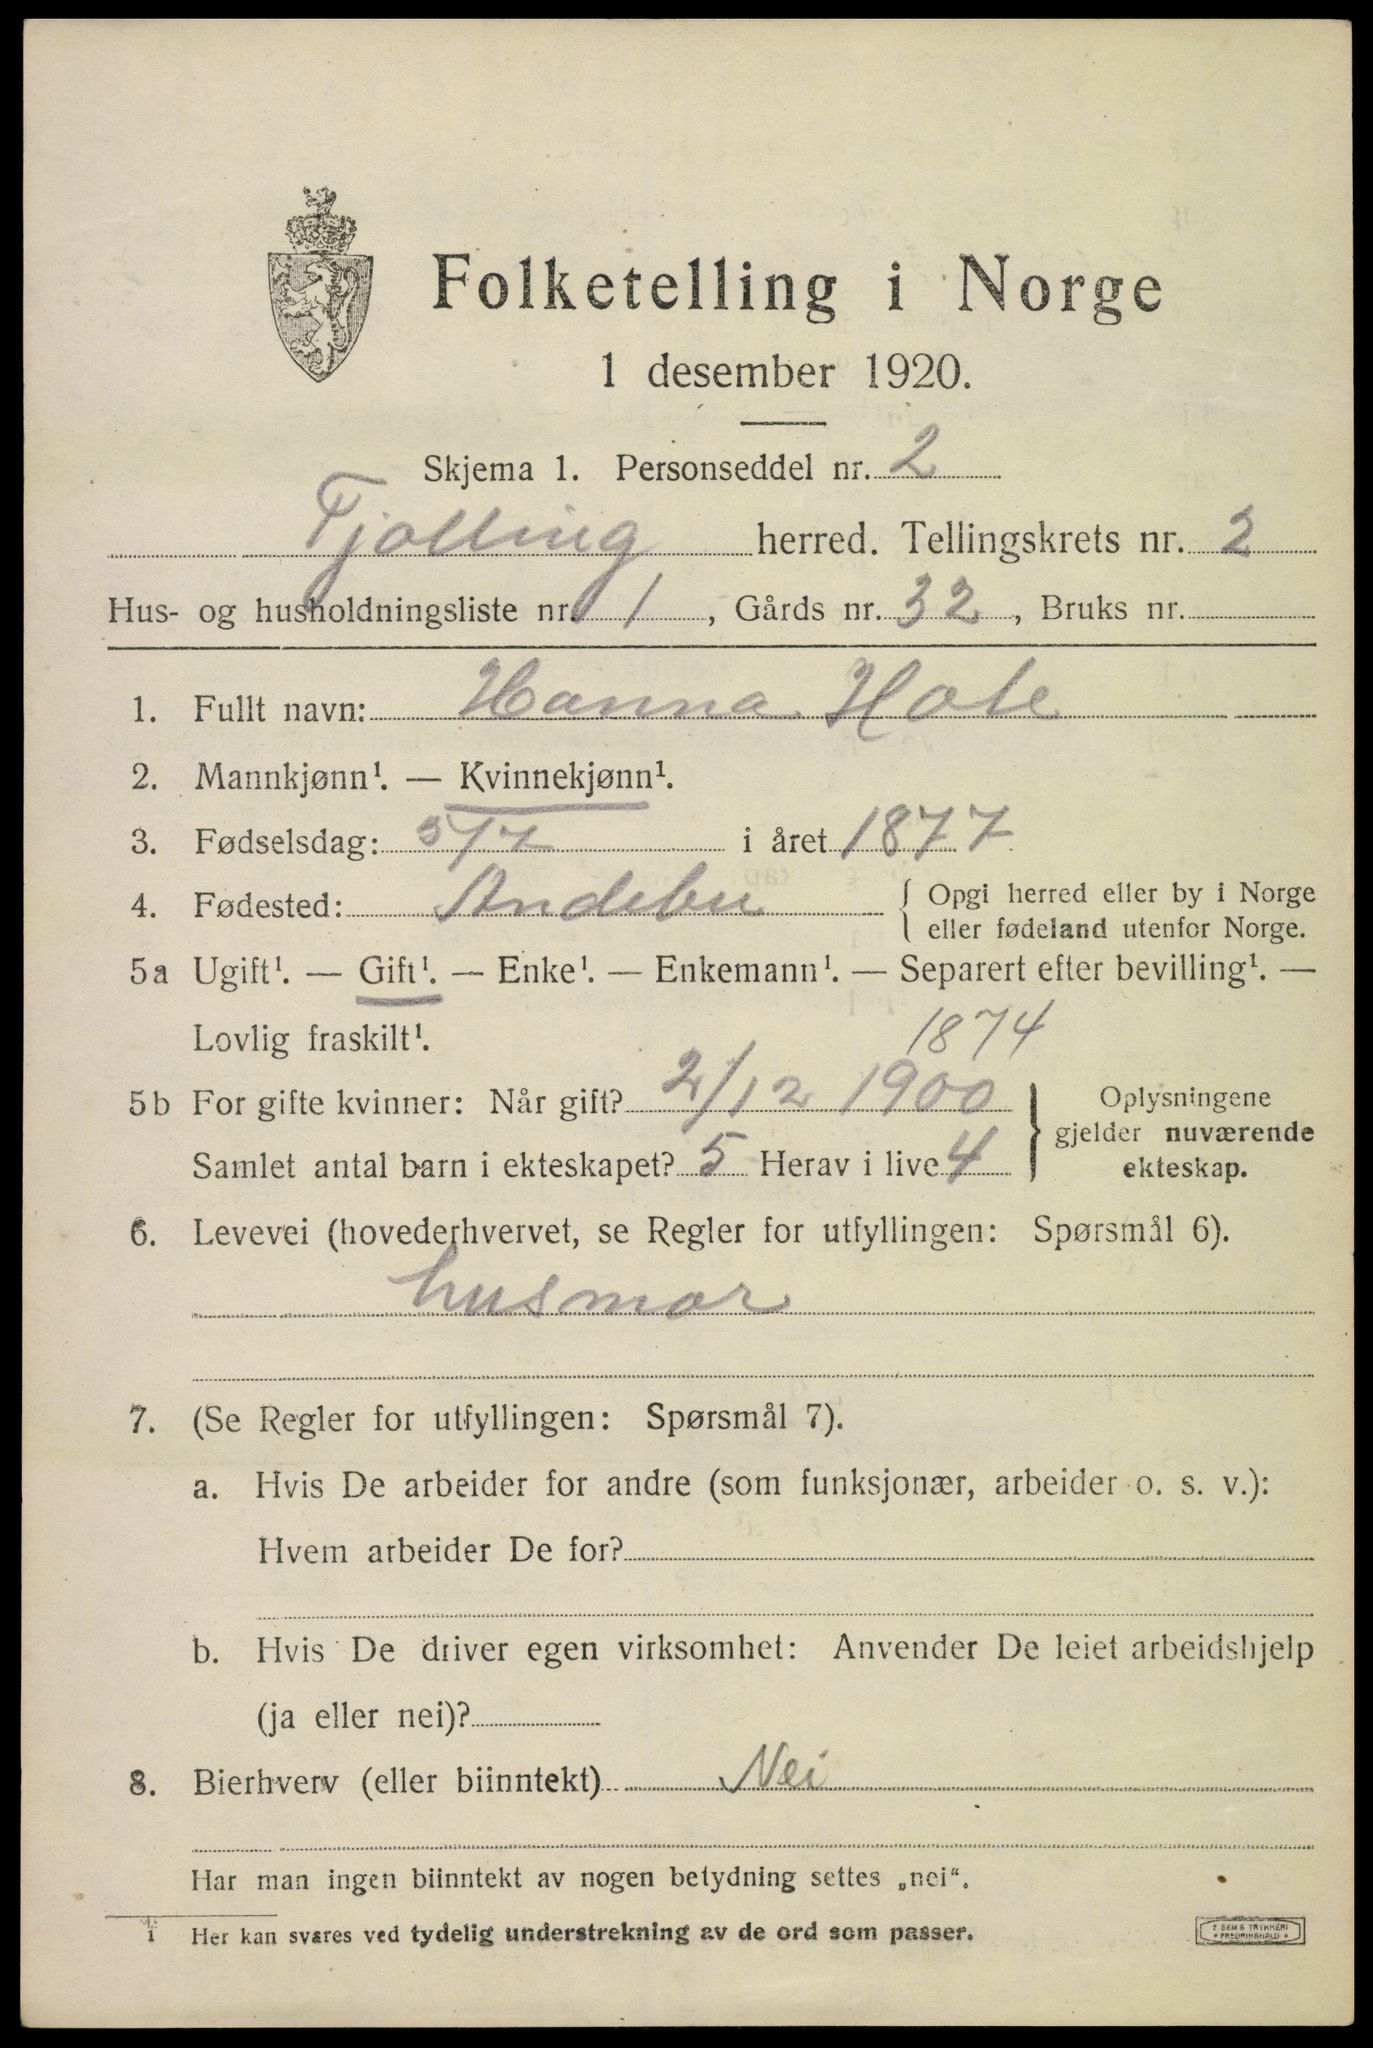 Folketelling i Norge
1 desember 1920.
Skjema 1. Personseddel nr. 2
Tjølling herred. Tellingskrets nr. 2
Hus- og husholdningsliste nr. 1, Gårds nr. 32, Bruks nr.
1. Fullt navn: Hanna Hole
2. Mannkjønn¹. — Kvinnekjønn¹.
3. Fødselsdag: 5/7 i året 1877
4. Fødested: Andebu { Opgi herred eller by i Norge
eller fødeland utenfor Norge.
5a Ugift¹. — Gift¹. — Enke¹. — Enkemann¹. — Separert efter bevilling¹. —
Lovlig fraskilt¹. 1874
5b For gifte kvinner: Når gift? 2/12 1900 } Oplysningene
gjelder nuværende
Samlet antal barn i ekteskapet? 5 Herav i live 4 ekteskap.
6. Levevei (hovederhvervet, se Regler for utfyllingen: Spørsmål 6).
husmor
7. (Se Regler for utfyllingen: Spørsmål 7).
a. Hvis De arbeider for andre (som funksjonær, arbeider o. s. v.):
Hvem arbeider De for?
b. Hvis De driver egen virksomhet: Anvender De leiet arbeidshjelp
(ja eller nei)?
8. Bierhverv (eller biinntekt) Nei
Har man ingen biinntekt av nogen betydning settes „nei“.
1 Her kan svares ved tydelig understrekning av de ord som passer.
E SEMS TRYKKERI
FREDRIKSHALD